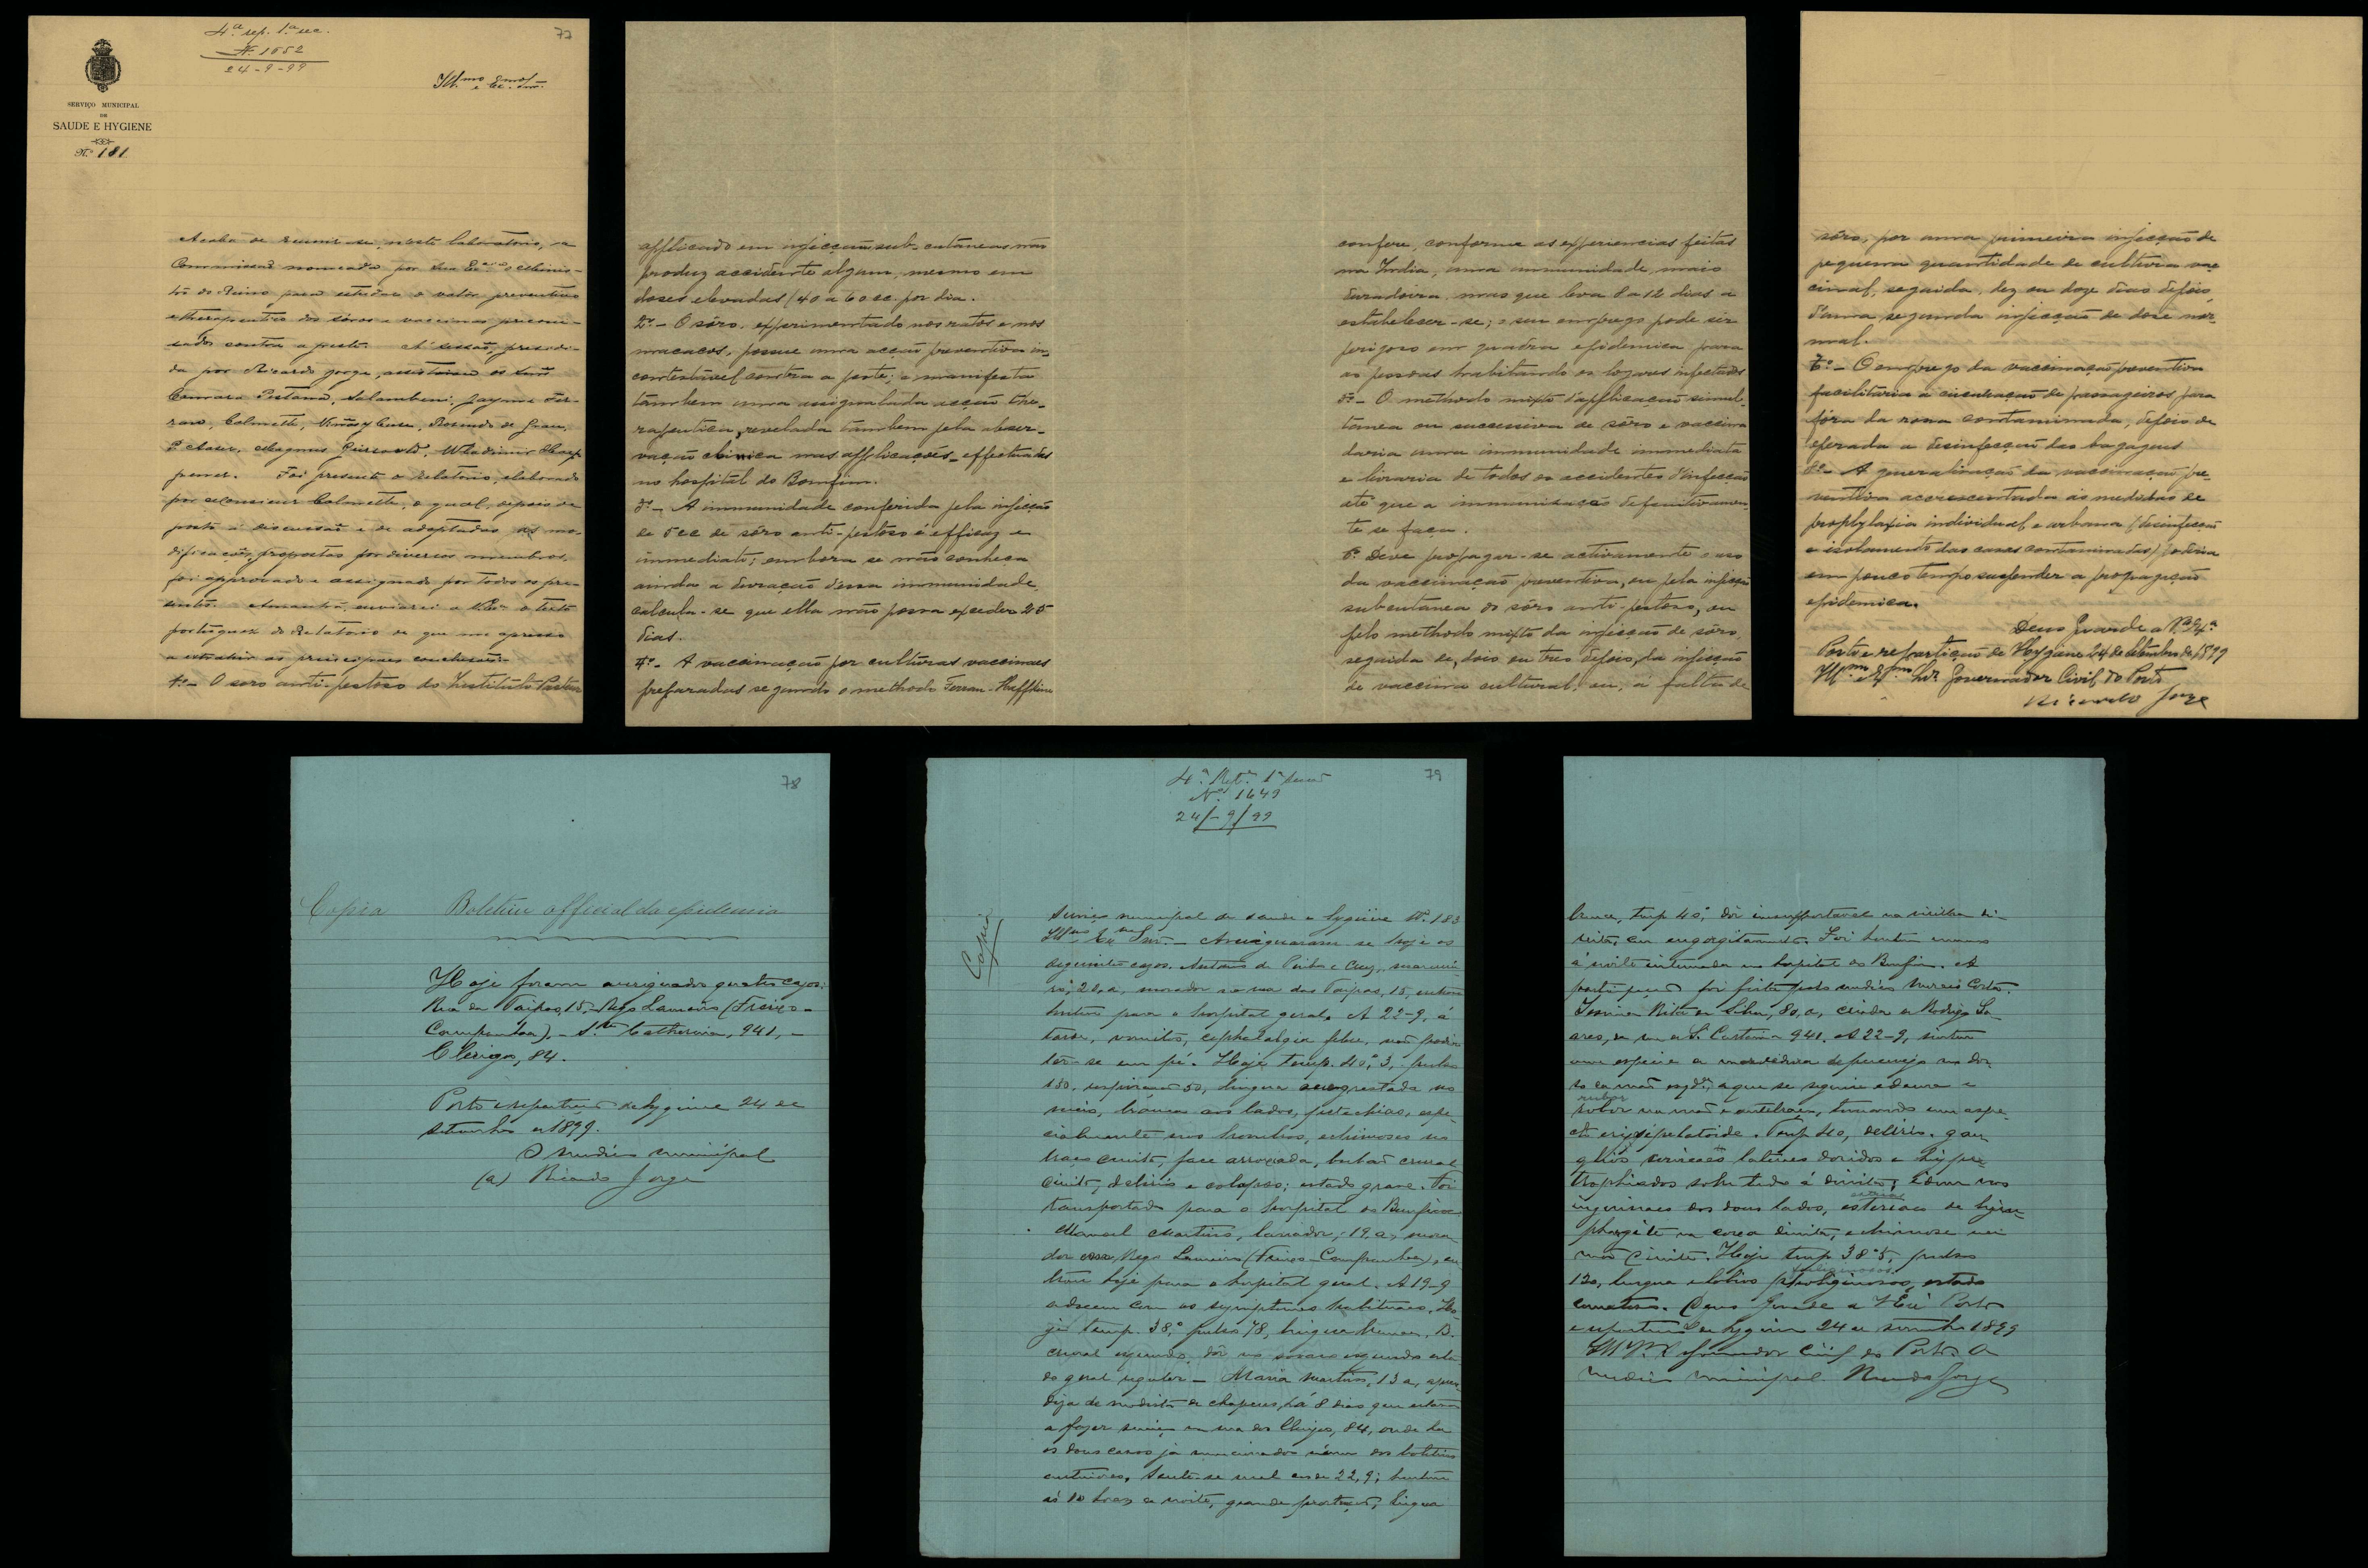 4ª rep. 1ª sec.
Nº 1652
24-9-99
77
Ill.mo e Ex.mo Snr.
SERVIÇO MUNICIPAL
DE
SAUDE E HYGIENE
N.º 181
Acaba de reunir-se, neste laboratorio, a
Commissão nomeada por Sua Ex.cia o Minis-
tro do Reino para estudar o valor preventivo
e therapeutico dos sôros e vaccinas preconi-
sados contra a peste. A' sessão, presidi-
da por Ricardo Jorge, assistiram os Snrs
Camara Pestana, Salimbeni, Jayme Fer-
ran, Calmette, Viñas y Cusí, Rosendo de Grau,
Magnus Geirsvold, Wladimir
Foi presente o relatorio, elaborado
por Monsieur Calmette, o qual, depois de
posto á discussão e de adoptadas as mo-
dificações propostas por diversos membros,
foi approvado e assignado por todos os pre-
sentes. Amanhã enviarei a V. Ex.ª o texto
portuguez do Relatorio de que me apresso
a extrahir as principaes conclusões.
1º- O soro anti-pestoso do Instituto Pasteur
applicado em injecções sub-cutâneas não
produz accidente algum, mesmo em
doses elevadas (40 a 60 cc. por dia.
2º- O sôro, experimentado nos ratos e nos
macacos, possue uma acção preventiva in-
contestavel contra a peste; e manifesta
tambem uma assignalada acção the-
rapeutica, revelada tambem pela obser-
vação clinica nas applicações effectuadas
no hospital do Bomfim.
3º- A immunidade conferida pela injecção
de 5 cc de sôro anti-pestoso é efficaz e
immediata; embora se não conheça
ainda a duração dessa immunidade,
calcula-se que ella não possa exceder 25
dias.
4º- A vaccinação por culturas vaccinaes
preparadas segundo o methodo Ferran-Haffkine
confere, conforme as experiencias feitas
na India, uma immunidade mais
duradoira, mas que leva 8 a 12 dias a
estabelecer-se; o seu emprego pode ser
perigoso em quadra epidemica para
as pessoas habitando os logares infectados
5º- O methodo mixto d'applicação simul-
tanea ou successiva de sôro e vaccina
daria uma immunidade immediata
e livraria de todos os accidentes d'infecção
até que a immunisação definitivamen-
te se faça.
6º Deve propagar-se activamente o uso
da vaccinação preventiva, ou pela injecção
subcutanea do sôro anti-pestoso, ou
pelo methodo mixto da injecção de sôro,
seguida de, dois ou tres depois, da injecção
de vaccina cultural; ou, á falta de
sôro, por uma primeira injecção de
pequena quantidade de cultura vac-
cinal, seguida, dez ou doze dias depois,
d'uma segunda injecção de dose nor-
mal.
7º- O emprego da vaccinação preventiva
facilitaria a circulação de passageiros para
fóra da zona contaminada, depois de
operada a desinfecção das bagagens
8º- A generalisação da vaccinação pre-
ventiva accrescentada ás medidas de
prophylaxia individual e urbana (desinfecção
e isolamento das casas contaminadas) poderia
em pouco tempo suspender a propagação
epidemica.
Deus Guarde a V.ª Ex.ª
Porto e repartição de Hygiene 24 de Setembro de 1899
Ill.mo e Ex.mo Snr. Governador Civil do Porto
Ricardo Jorge
78
Copia Boletim official da epidemia
Hoje foram averiguados quatro casos:
Rua da Taipas, 15,- Rego Lameiro (Freixo-
Campanhã),- S.ta Catherina, 941,-
Clerigos, 84.
Porto e repartição de hygiene 24 de
setembro de 1899.
O medico municipal
(a) Ricardo Jorge
4ª Rep. 1ª secção
Nº 1649
24/-9/99
79
Copia
Serviço municipal de saude e hygiene Nº 183
Ill.mo Ex.mo Snr. - Averiguaram-se hoje os
seguintes casos. Antonio de Pinho e Cruz, marcinei-
ro, 20, a, morador na rua das Taipas, 15, entrou
hontem para o hospital geral. A 22-9, á
tarde, vomitos, cephalalgia febre, não podia
ter-se em pé. Hoje temp. 40,º3, pulso
130, respiração 50, lingua no
meio, branca aos lados, petechias, espe-
cialmente nos hombros, echimoses no
braço direito, face arroxada, bubão crural
direito, delirio e colapso; estado grave. Foi
transportado para o hospital do Bomfim
Manoel Martins, lavrador, 19, a, mora-
dor Rego Lameiro (Freixo-Campanhã), en-
trou hoje para o hospital geral. A 19-9
adoeceu com os symptomas habituaes. Ho-
je temp. 38,º pulso 78, lingua branca, B.
crural esquerdo, dôr no esquerdo esta-
do geral regular - Maria Martins, 13 a, apren-
diza de modista de chapeus, há 8 dias que estava
a fazer serviço na rua dos Clerigos, 84, onde ha
os dous casos já mencionados n'um dos boletins
anteriores. Sente-se mal desde 22,9; hontem
ás 10 horas da noite, grande prostração, lingua
branca, temp 40,º dôr insupportavel na virilha di-
reita, em engorgitamento. Foi hontem mesmo
á noite internada no hospital do Bomfim. A
participação foi feita pelo medico Costa.
Rita da Silva, 80, a, criada de Rodrigo Soa-
ares, da rua de S. Catharina 941. A 22-9, sentiu
uma especie de mordedura de percevejo no dor-
so da mão esqd.ª, a que se seguiu edema e
rubor
na mão e antebraço, tomando um aspe-
cto erysipelatoide. Temp 40, delirio. gan-
glios cervicaes lateraes doridos e hyper-
trophiados sobre tudo á direita; edem nos
inguinaes dos dous lados, de lym-
phangite na coxa direita, echimose na
mão direita. Hoje temp 38º5, pulso
120, lingua e labios fuliginosos, estado
comatoso. Deus Guarde a V Ex.ª Porto
e repartição de hygiene 24 de setembro 1899
Governador Civil do Porto. O
medico municipal. Ricardo Jorge